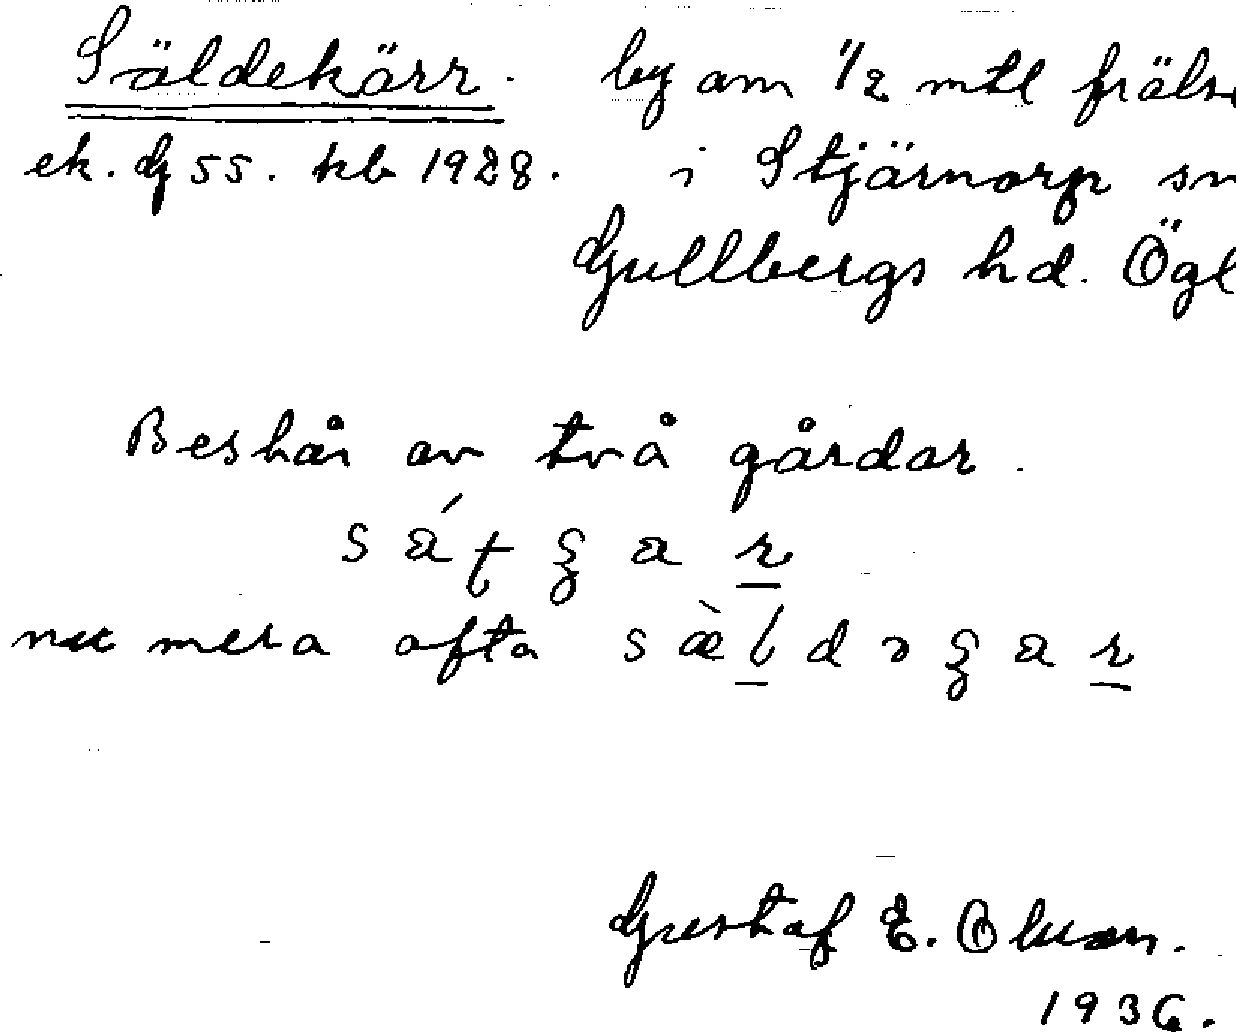 Säldekärr. by om 1/2 mtl frälse
ek. bl 55. kb 1928. i Stjärnorp sn
Gullbergs hd. Ögl
Består av två gårdar.
numera ofta
Gustaf E. Olsson.
1936.